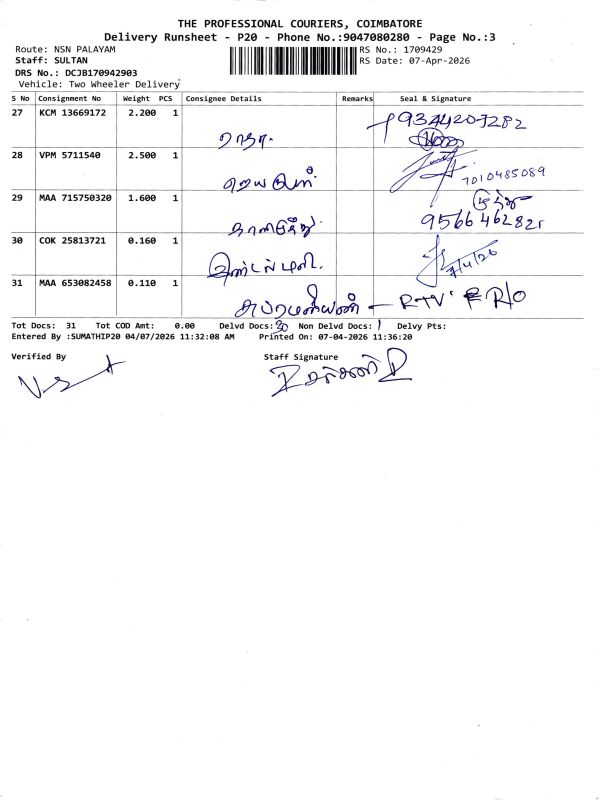 THE PROFESSIONAL COURIERS, COIMBATORE
Delivery Runsheet - P20 - Phone No.:9047080280 - Page No.:3
Route: NSN PALAYAM RS No.: 1709429
Staff: SULTAN RS Date: 07-Apr-2026
DRS No.: DCJB170942903
Vehicle: Two Wheeler Delivery
S No Consignment No Weight PCS Consignee Details Remarks Seal & Signature
27 KCM 13669172 2.200 1
ராதா.
28 VPM 5711540 2.500 1
7010485089
29 MAA 715750320 1.600 1
9566462821
30 COK 25813721 0.160 1
7/4/26
31 MAA 653082458 0.110 1
சுப்ரமணியன் - RTV R/O
Tot Docs: 31 Tot COD Amt: 0.00 Delvd Docs: 30 Non Delvd Docs: 1 Delvy Pts:
Entered By :SUMATHIP20 04/07/2026 11:32:08 AM Printed On: 07-04-2026 11:36:20
Verified By Staff Signature